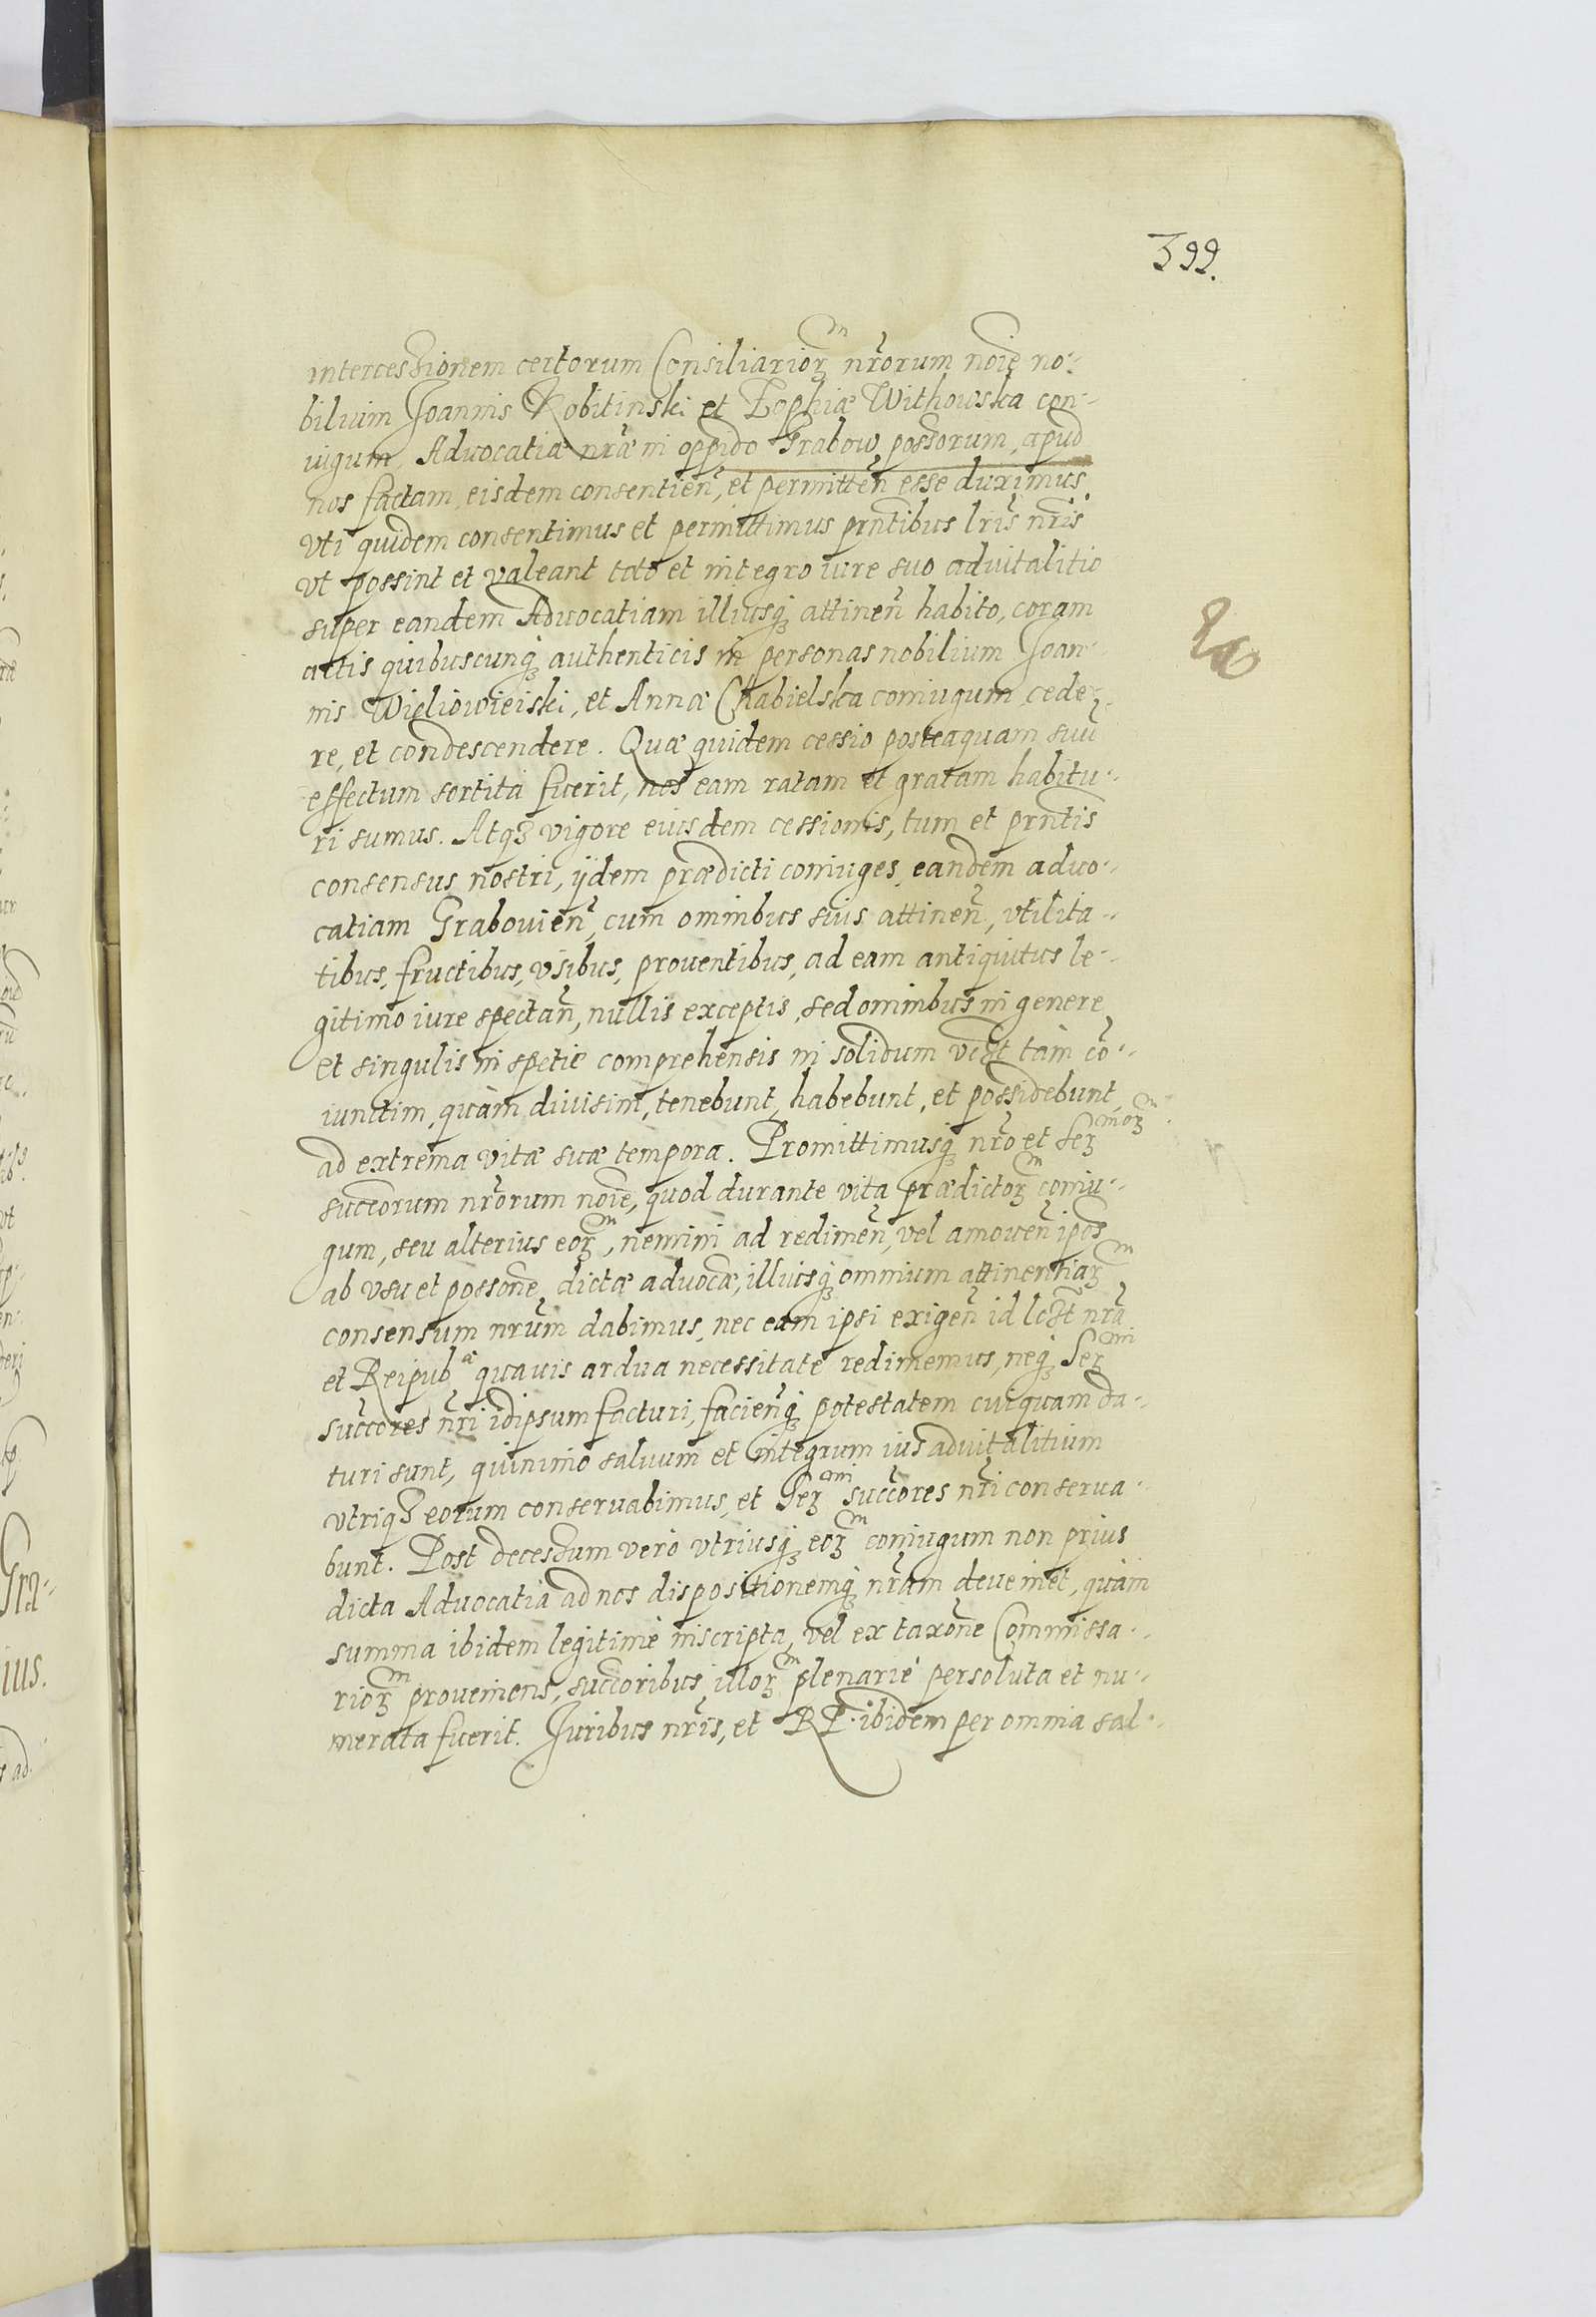 399.
intercessionem certorum Consiliarioꝝ nr̃orum noiẽ no-
bilium Joannis Kobitinski et Zophiæ Withowska con-
iugum, Aduocatiæ nr̃æ in oppido Grabow possorum, apud
nos factam, eisdem consentien̄, et permitten̄ esse duximus
vti quidem consentimus et permittimus prñtibus lr̃is nr̃is
vt possint et valeant toto et integro iure suo aduitalitio
super eandem Aduocatiam illiusq̃ attinen̄ habito, coram
actis quibuscunq̃ authenticis in personas nobilium Joan-
nis Wieliowieiski, et Annæ Chabielska coniugum cede-
re, et condescendere. Quæ quidem cessio posteaquam suũ
effectum sortita fuerit, nos eam ratam et gratam habitu-
ri sumus. Atqꝫ vigore eiusdem cessionis, tum et prñtis
consensus nostri, ijdem prædicti coniuges, eandem aduo-
catiam Grabouien̄, cum omnibus suis attinen̄, vtilita-
tibus, fructibus, vsibus, prouentibus, ad eam antiquitus le-
gitimo iure spectan̄, nullis exceptis, sed omnibus in genere
et singulis in spetie comprehensis in solidum vꝫt tàm cõ-
iunctim, quàm diuisim, tenebunt, habebunt, et possidebunt
ad extrema vitæ suæ tempora. Promittimusq̃ nr̃o et Serᵐᵒꝝ
succorum nr̃orum noiẽ, quod durante vita prædictoꝝ coniu-
gum, seu alterius eoꝝ, nemini ad redimen̄, vel amouen̄ ipos
ab vsu et possone dictæ aduocæ, illiusq̃ omnium attinentiaꝝ
consensum nr̃um dabimus, nec eam ipsi exigen̄ id lcꝫt nr̃a
et Reipubᵃᵉ quauis ardua necessitate redimemus, neq̃ Serᵐⁱ
succores nr̃i idipsum facturi, facien̄q̃ potestatem cuiquam da-
turi sunt, quinimo saluum et integrum ius aduitalitium
vtriqꝫ eorum conseruabimus, et Serᵐⁱ succores nr̃i conserua-
bunt. Post decessum vero vtriusq̃ eoꝝ coniugum non prius
dicta Aduocatia ad nos dispositionemq̃ nr̃am deueniet, quàm
summa ibidem legitimè inscripta, vel ex taxone Commissa-
rioꝝ proueniens, succoribus illoꝝ plenariè persoluta et nu-
merata fuerit. Juribus nr̃is, et RP. ibidem per omnia sal-